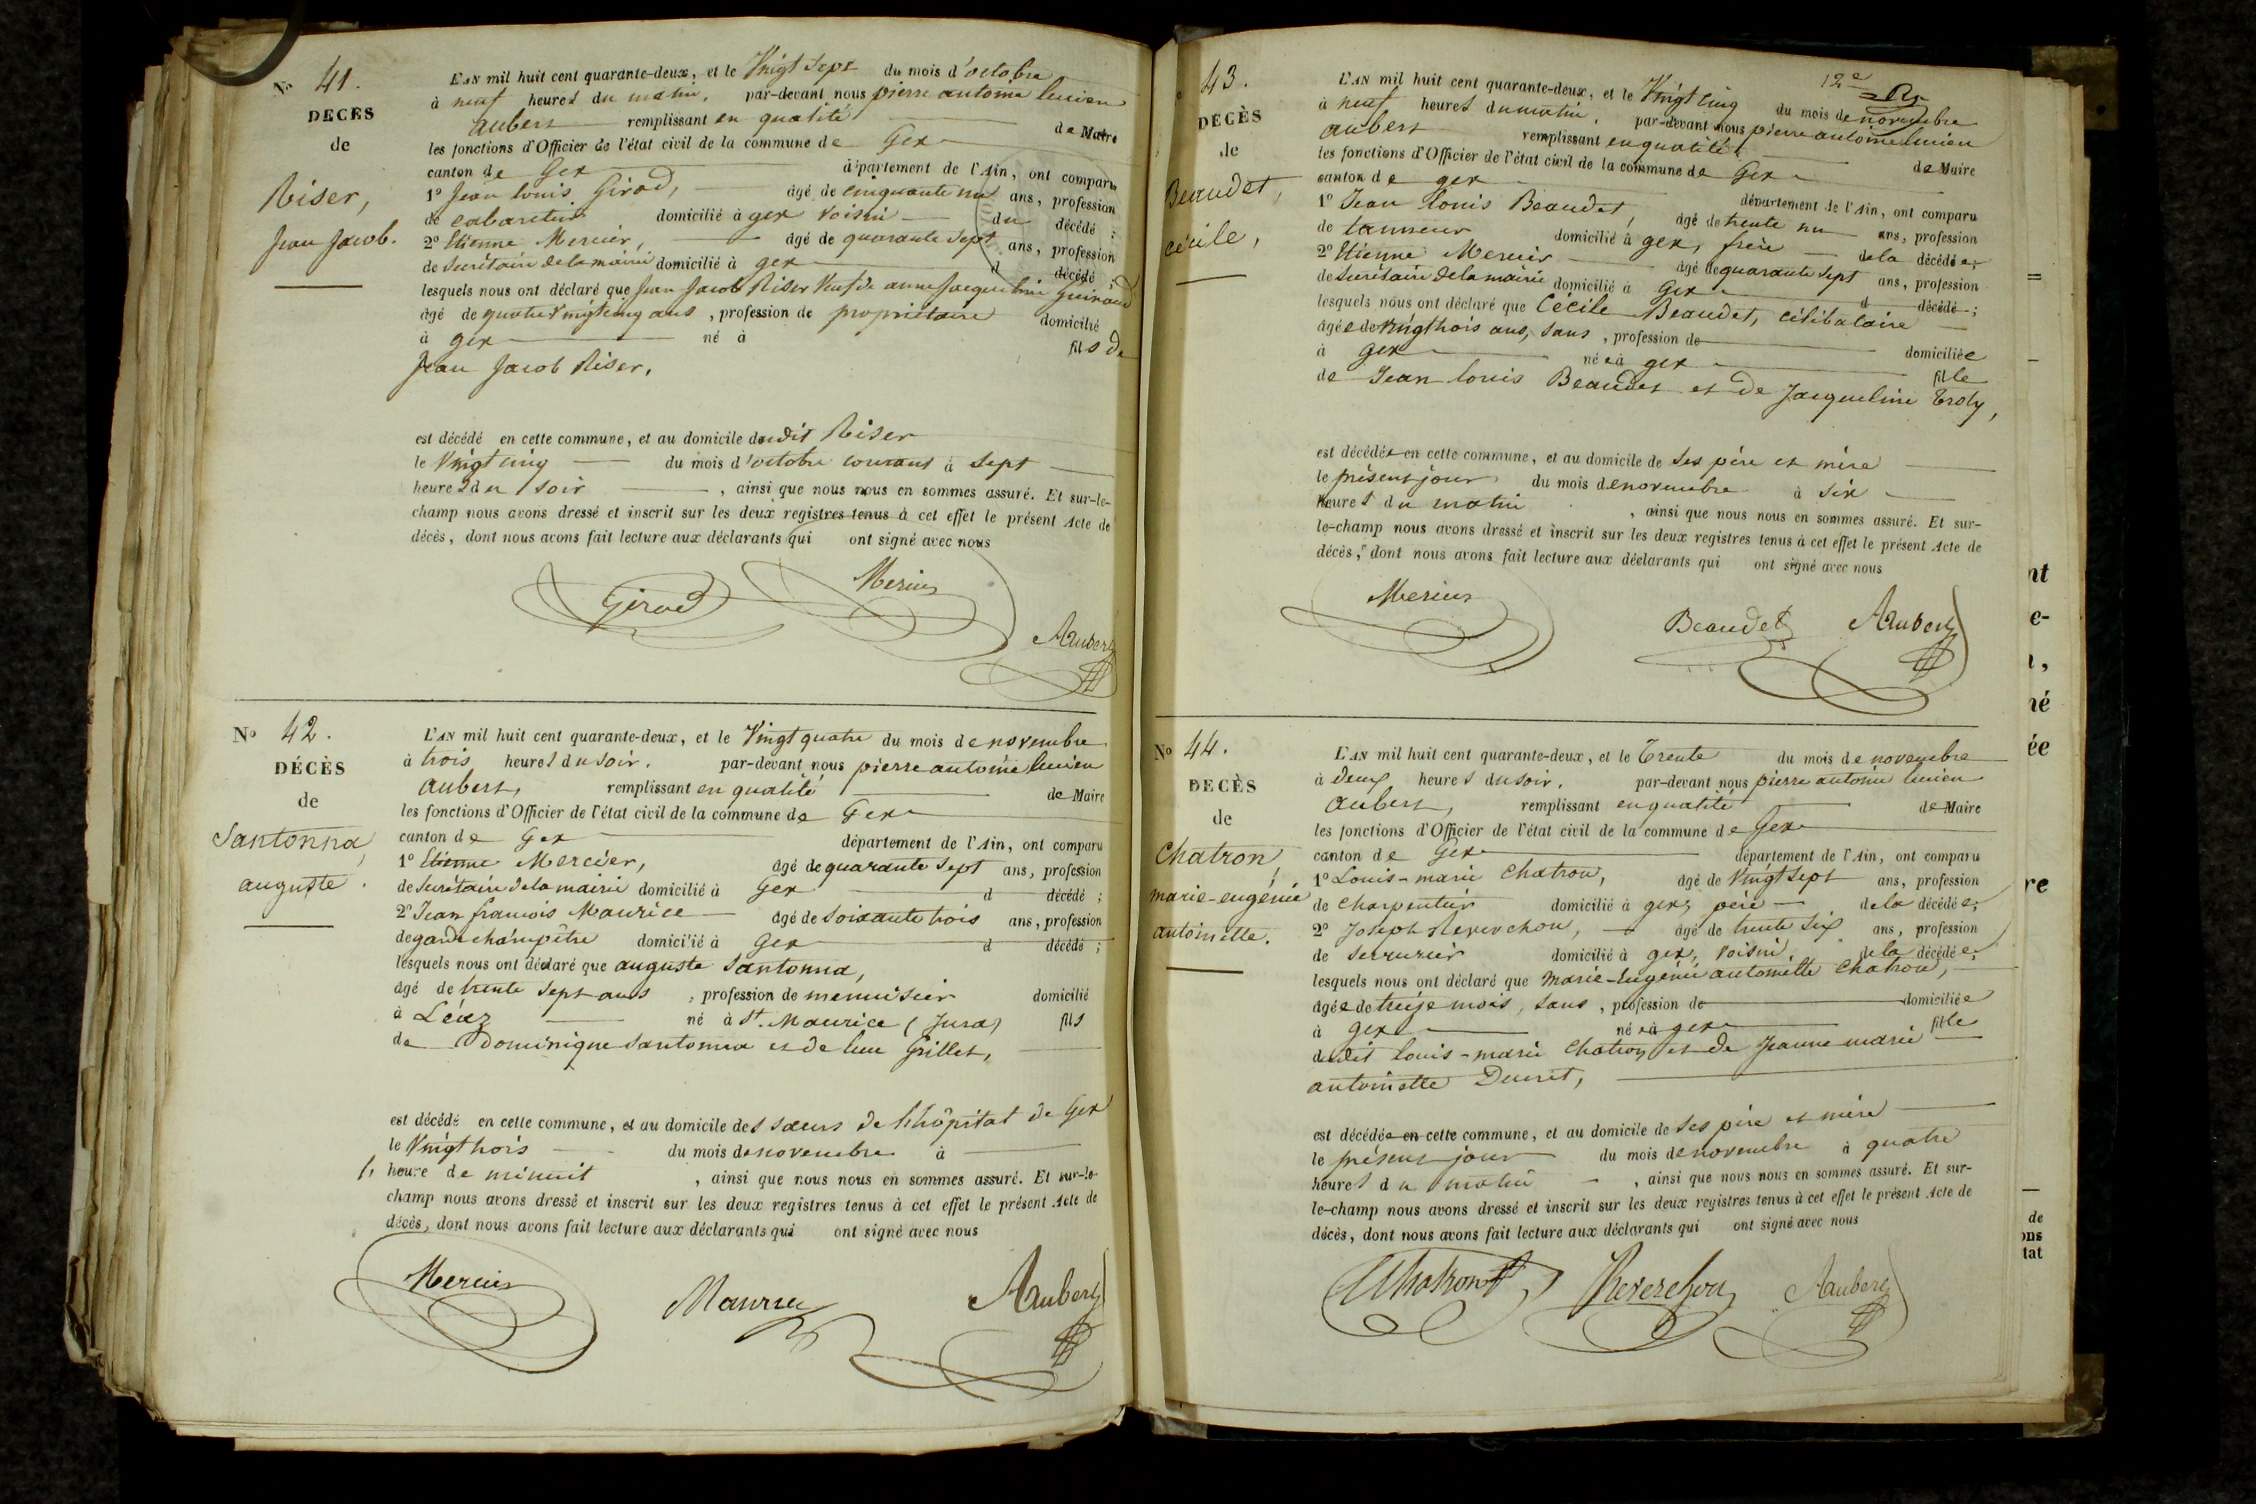 N° 41.
DÉCÈS
de
Riser,
Jean Jacob.
L'AN mil huit cent quarante-deux, et le Vingt Sept du mois d'octobre
à neuf heures du matin, par-devant nous pierre antoine lucien
aubert remplissant en qualité de Maire
les fonctions d'Officier de l'état civil de la commune de Gex
canton de Gex département de l'Ain, ont comparu
1° Jean Louis Girod, âgé de cinquante un ans, profession
de cabaretier domicilié à gex voisin du décédé ;
2° Etienne Mercier, âgé de quarante Sept ans, profession
de Secrétaire de la mairie domicilié à gex d décédé ;
lesquels nous ont déclaré que Jean Jacob Riser Veuf de anne Jacqueline Guinand
âgé de quatre Vingt cinq ans , profession de propriétaire domicilié
à gex né à fils de
Jean Jacob Riser.
est décédé en cette commune, et au domicile dudit Riser
le Vingt cinq du mois d'octobre courant à Sept
heures du soir , ainsi que nous nous en sommes assuré. Et sur-le-
champ nous avons dressé et inscrit sur les deux registres tenus à cet effet le présent Acte de
décès, dont nous avons fait lecture aux déclarants qui ont signé avec nous
Girod Mercier
Aubert
N° 42.
DÉCÈS
de
Santonna,
auguste.
L'AN mil huit cent quarante-deux, et le Vingt quatre du mois de novembre
à trois heures du soir. par-devant nous pierre antoine lucien
aubert, remplissant en qualité de Maire
les fonctions d'Officier de l'état civil de la commune de Gex
canton de Gex département de l'Ain, ont comparu
1° Etienne Mercier, âgé de quarante Sept ans, profession
de Secrétaire de la mairie domicilié à Gex d décédé ;
2° Jean françois Maurice âgé de Soixante trois ans, profession
de garde champêtre domicilié à Gex d décédé ;
lesquels nous ont déclaré que auguste Santonna,
âgé de trente Sept ans , profession de menuisier domicilié
à Léaz né à St. Maurice (Jura) fils
de Dominique Santonna et de Grillet,
est décédé en cette commune, et au domicile des Sœurs de l'hôpital de Gex
le Vingt trois du mois de novembre à
heure de minuit , ainsi que nous nous en sommes assuré. Et sur-le-
champ nous avons dressé et inscrit sur les deux registres tenus à cet effet le présent Acte de
décès, dont nous avons fait lecture aux déclarants qui ont signé avec nous
Mercier Maurice Aubert
12e
43.
DÉCÈS
de
Beaudet,
cécile,
L'AN mil huit cent quarante-deux, et le Vingt cinq du mois de novembre
à neuf heures du matin, par-devant nous pierre antoine lucien
aubert remplissant en qualité de Maire
les fonctions d'Officier de l'état civil de la commune de Gex
canton de gex département de l'Ain, ont comparu
1° Jean Louis Beaudet, âgé de trente un ans, profession
de tanneur domicilié à gex, frère de la décédée;
2° Etienne Mercier âgé de quarante Sept ans, profession
de Secrétaire de la mairie domicilié à Gex d décédé ;
lesquels nous ont déclaré que Cécile Beaudet, célibataire
âgée de Vingt trois ans, sans , profession de domiciliée
à Gex née à gex fille
de Jean Louis Beaudet et de Jacqueline Troly,
est décédée en cette commune, et au domicile de ses père et mère
le présent jour du mois de novembre à six
heures du matin , ainsi que nous nous en sommes assuré. Et sur-
le-champ nous avons dressé et inscrit sur les deux registres tenus à cet effet le présent Acte de
décès, dont nous avons fait lecture aux déclarants qui ont signé avec nous
Mercier Beaudet Aubert
N° 44.
DÉCÈS
de
Chatron,
marie-eugénie
antoinette.
L'AN mil huit cent quarante-deux, et le Trente du mois de novembre
à deux heures du soir. par-devant nous pierre antoine lucien
aubert, remplissant en qualité de Maire
les fonctions d'Officier de l'état civil de la commune de Gex
canton de Gex département de l'Ain, ont comparu
1° Louis-marie Chatron, âgé de Vingt Sept ans, profession
de charpentier domicilié à gex, père de la décédée;
2° Joseph Reverchon, âgé de trente Six ans, profession
de Serrurier domicilié à gex, voisin, de la décédée;
lesquels nous ont déclaré que Marie-Eugénie antoinette Chatron,
âgée de treize mois, sans , profession de domiciliée
à gex née à gex fille
dudit louis-marie Chatron et de Jeanne marie
antoinette Ducret,
est décédée en cette commune, et au domicile de ses père et mère
le présent jour du mois de novembre à quatre
heures du matin , ainsi que nous nous en sommes assuré. Et sur-
le-champ nous avons dressé et inscrit sur les deux registres tenus à cet effet le présent Acte de
décès, dont nous avons fait lecture aux déclarants qui ont signé avec nous
Chatron Reverchon Aubert